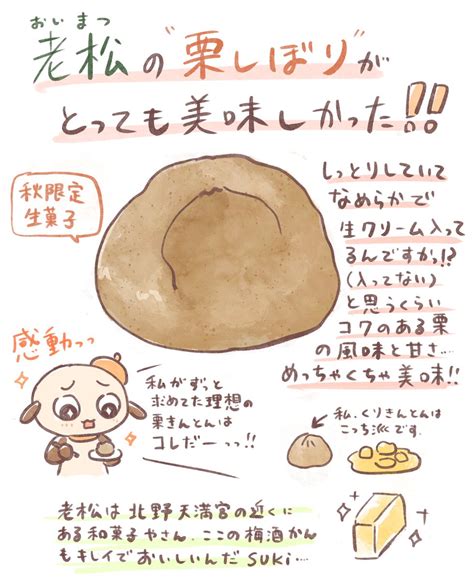 おいまつ
老松の"栗しぼり"が
とっても美味しかった!!
秋限定
生菓子
しっとりしていて
なめらかで
生クリーム入って
るんですかっ!?
(入ってない)
と思うくらい
コクのある栗
の風味と甘さ…
めっちゃくちゃ美味!!
感動っっ
私がずっと
求めてた理想の
栗きんとんは
コレだーっっ!!
私、くりきんとんは
こっち派です.
老松は北野天満宮の近くに
ある和菓子やさん.ここの梅酒かん
もキレイでおいしいんだ SUKi…